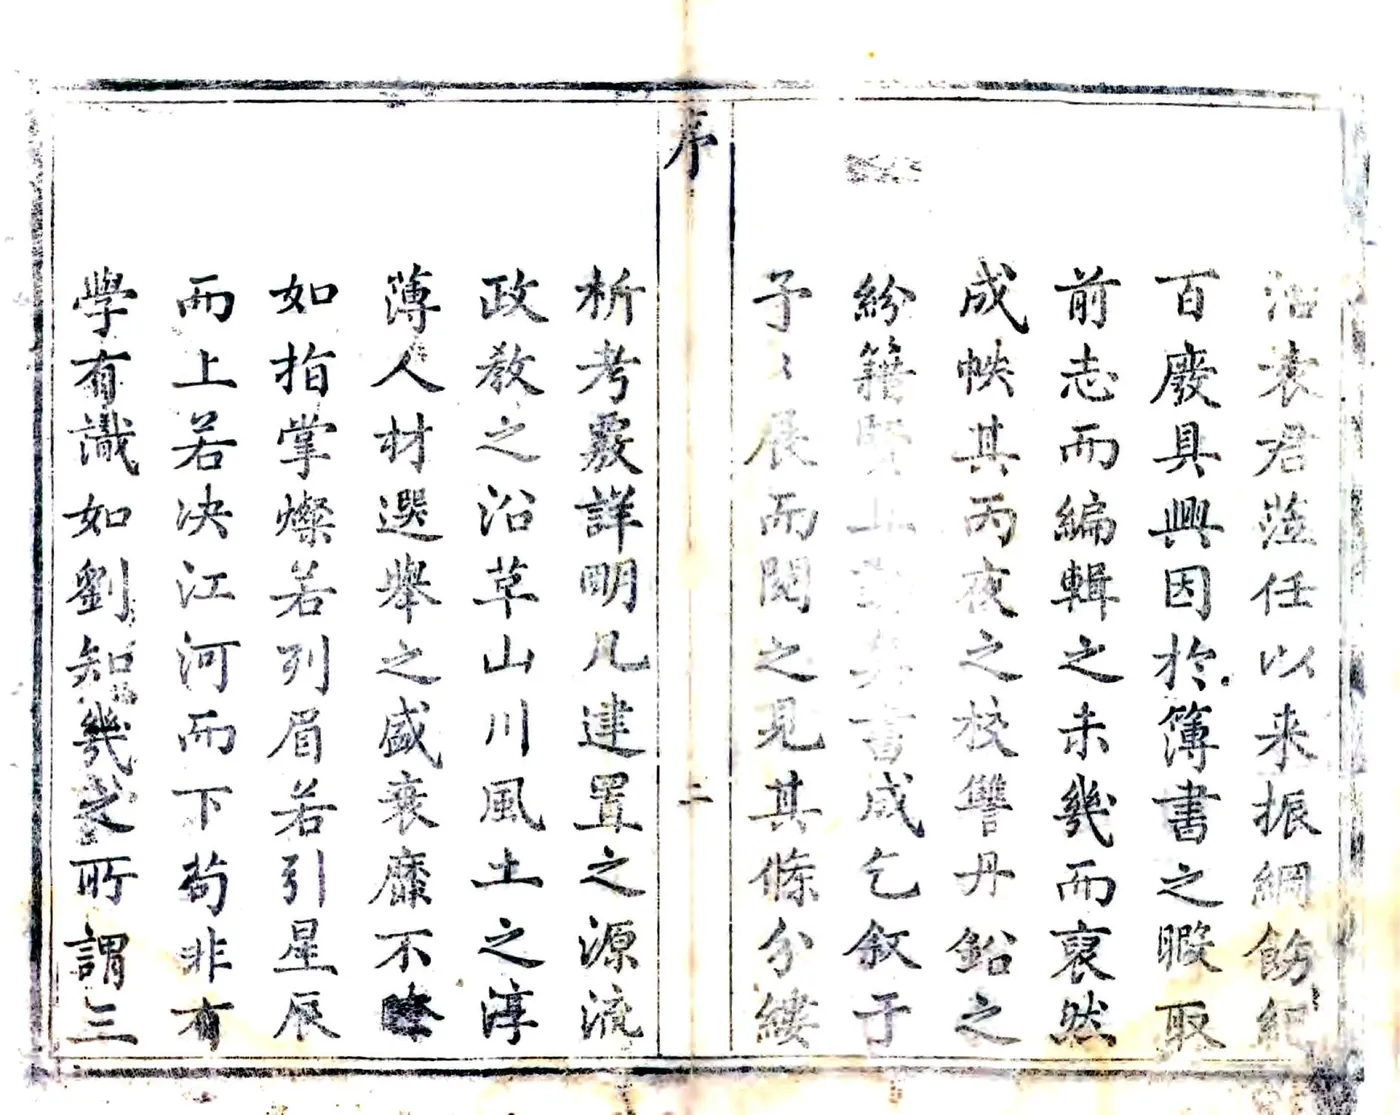 治袁君蒞任以来振綱飭紀
百廢具興因於簿書之暇取
前志而編輯之未幾而裒然
成帙其丙夜之校讐丹鉛之
紛籍賢書成乞叙于
予〻展而閱之見其條分縷
序
二
析考覈詳明凡建置之源流
政教之沿革山川風土之淳
薄人材選舉之盛衰靡不
如指掌燦若列眉若引星辰
而上若决江河而下苟非有
學有識如劉知幾之所謂三